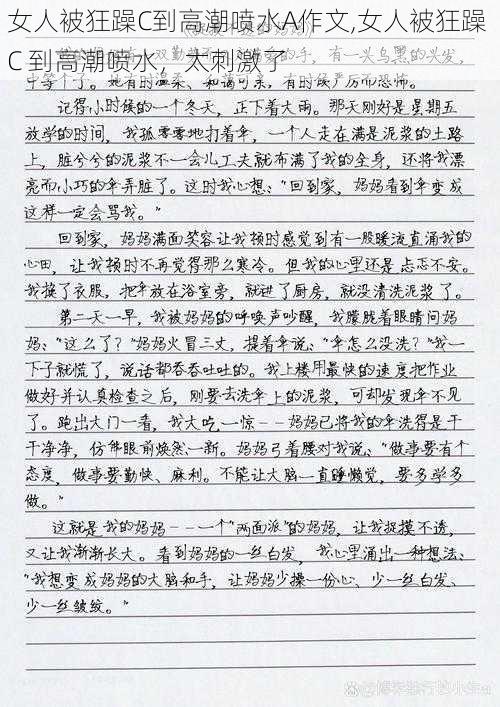 女人被狂躁C到高潮喷水A作文,女人被狂躁
C 到高潮喷水，太刺激了
中等个子。她有时温柔、和蔼可亲，有时候严厉而恐怖。
记得小时候的一个冬天，正下着大雨。那天刚好是星期五
放学的时间，我孤零零地打着伞，一个人走在满是泥浆的土路
上，脏兮兮的泥浆不一会儿工夫就布满了我的全身，还将我漂
亮而小巧的伞弄脏了。这时我心想：“回到家，妈妈看到伞变成
这样一定会骂我。”
回到家，妈妈满面笑容让我顿时感觉到有一股暖流直涌我的
心田，让我顿时不再觉得那么寒冷。但我的心里还是忐忑不安。
我换了衣服，把伞放在浴室旁，就进了厨房，就没清洗泥浆了。
第二天一早，我被妈妈的呼唤声吵醒，我朦胧着眼睛问妈
妈：“这么了？”妈妈火冒三丈，提着伞说：“伞怎么没洗？”我一
下子就慌了，说话都吞吞吐吐的。我上楼用最快的速度把作业
做好并认真检查之后，刚要去洗伞上的泥浆，可却发现伞不见
了。跑出大门一看，我大吃一惊－－妈妈已将我的伞洗得是干
干净净，仿佛眼前焕然一新。妈妈弓着腰对我说：“做事要有个
态度，做事要勤快、麻利。不能让大脑一直睡懒觉，要多学多
做。”
这就是我的妈妈－－－一个“两面派”的妈妈，让我捉摸不透，
又让我渐渐长大。看到妈妈的一丝白发，我心里涌出一种想法：
“我想变成妈妈的大脑和手，让妈妈少操一份心、少一丝白发、
少一丝皱纹。”